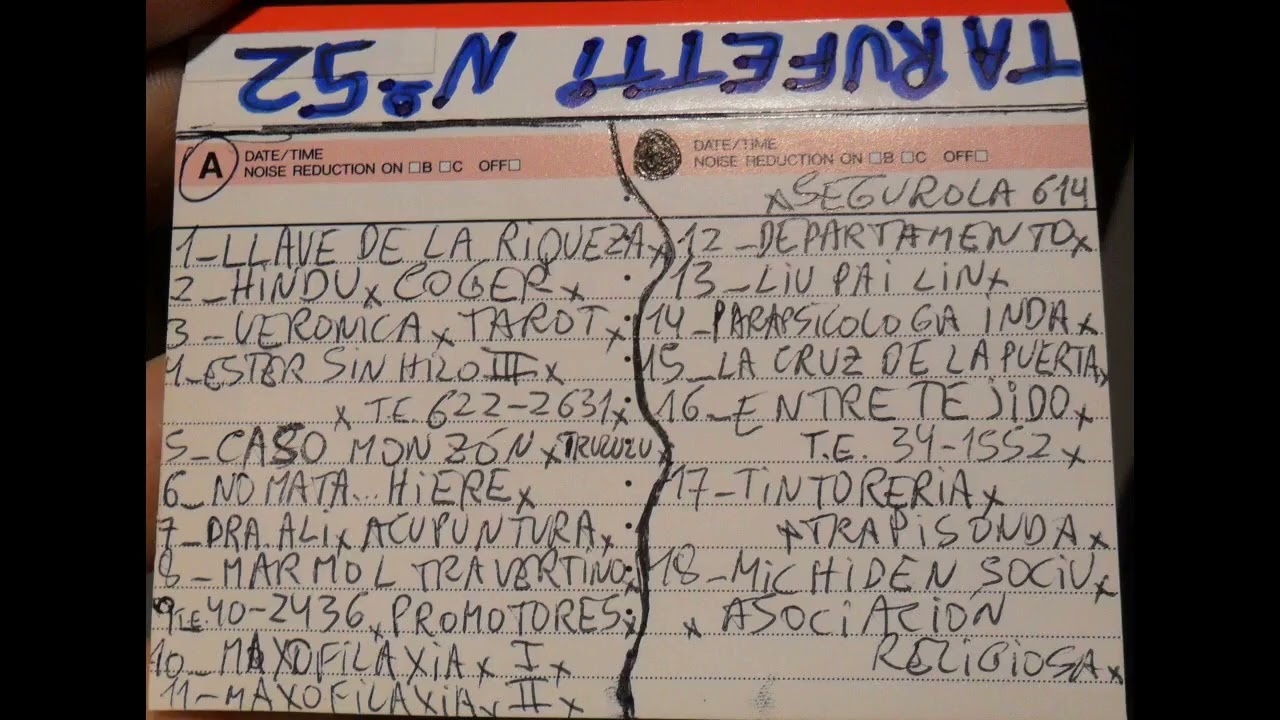 TARUFETTi Nº 52
A DATE/TIME
NOISE REDUCTION ON □B □C OFF□
DATE/TIME
NOISE REDUCTION ON □B □C OFF□
1_LLAVE DE LA RiQUEZA x
2_HiNDU x COGER x
3_VERONiCA x TAROT x
4_ESTER SiN HiLO III x
x T.E. 622-2631 x
5_CASO MONZÓN x TRUZUZU x
6_NO MATA... HiERE x
7_DRA. ALi x ACUPUNTURA x
8_MARMOL TRAVERTiNO x
9 T.E. 40-2436 x PROMOTORES x
10_MAXOFiLAXiA x I x
11_MAXOFiLAXiA x II x
x SEGUROLA 614
12_DEPARTAMENTO x
13_LiU PAi LiN x
14_PARAPSiCOLOGiA iNDA x
15_LA CRUZ DE LA PUERTA x
16_ENTRETEJiDO x
T.E. 34-1552 x
17_TiNTORERiA x
x TRAPiSONDA x
18_MiCHiDEN SOCiU x
x ASOCiACiÓN
RELiGiOSA x